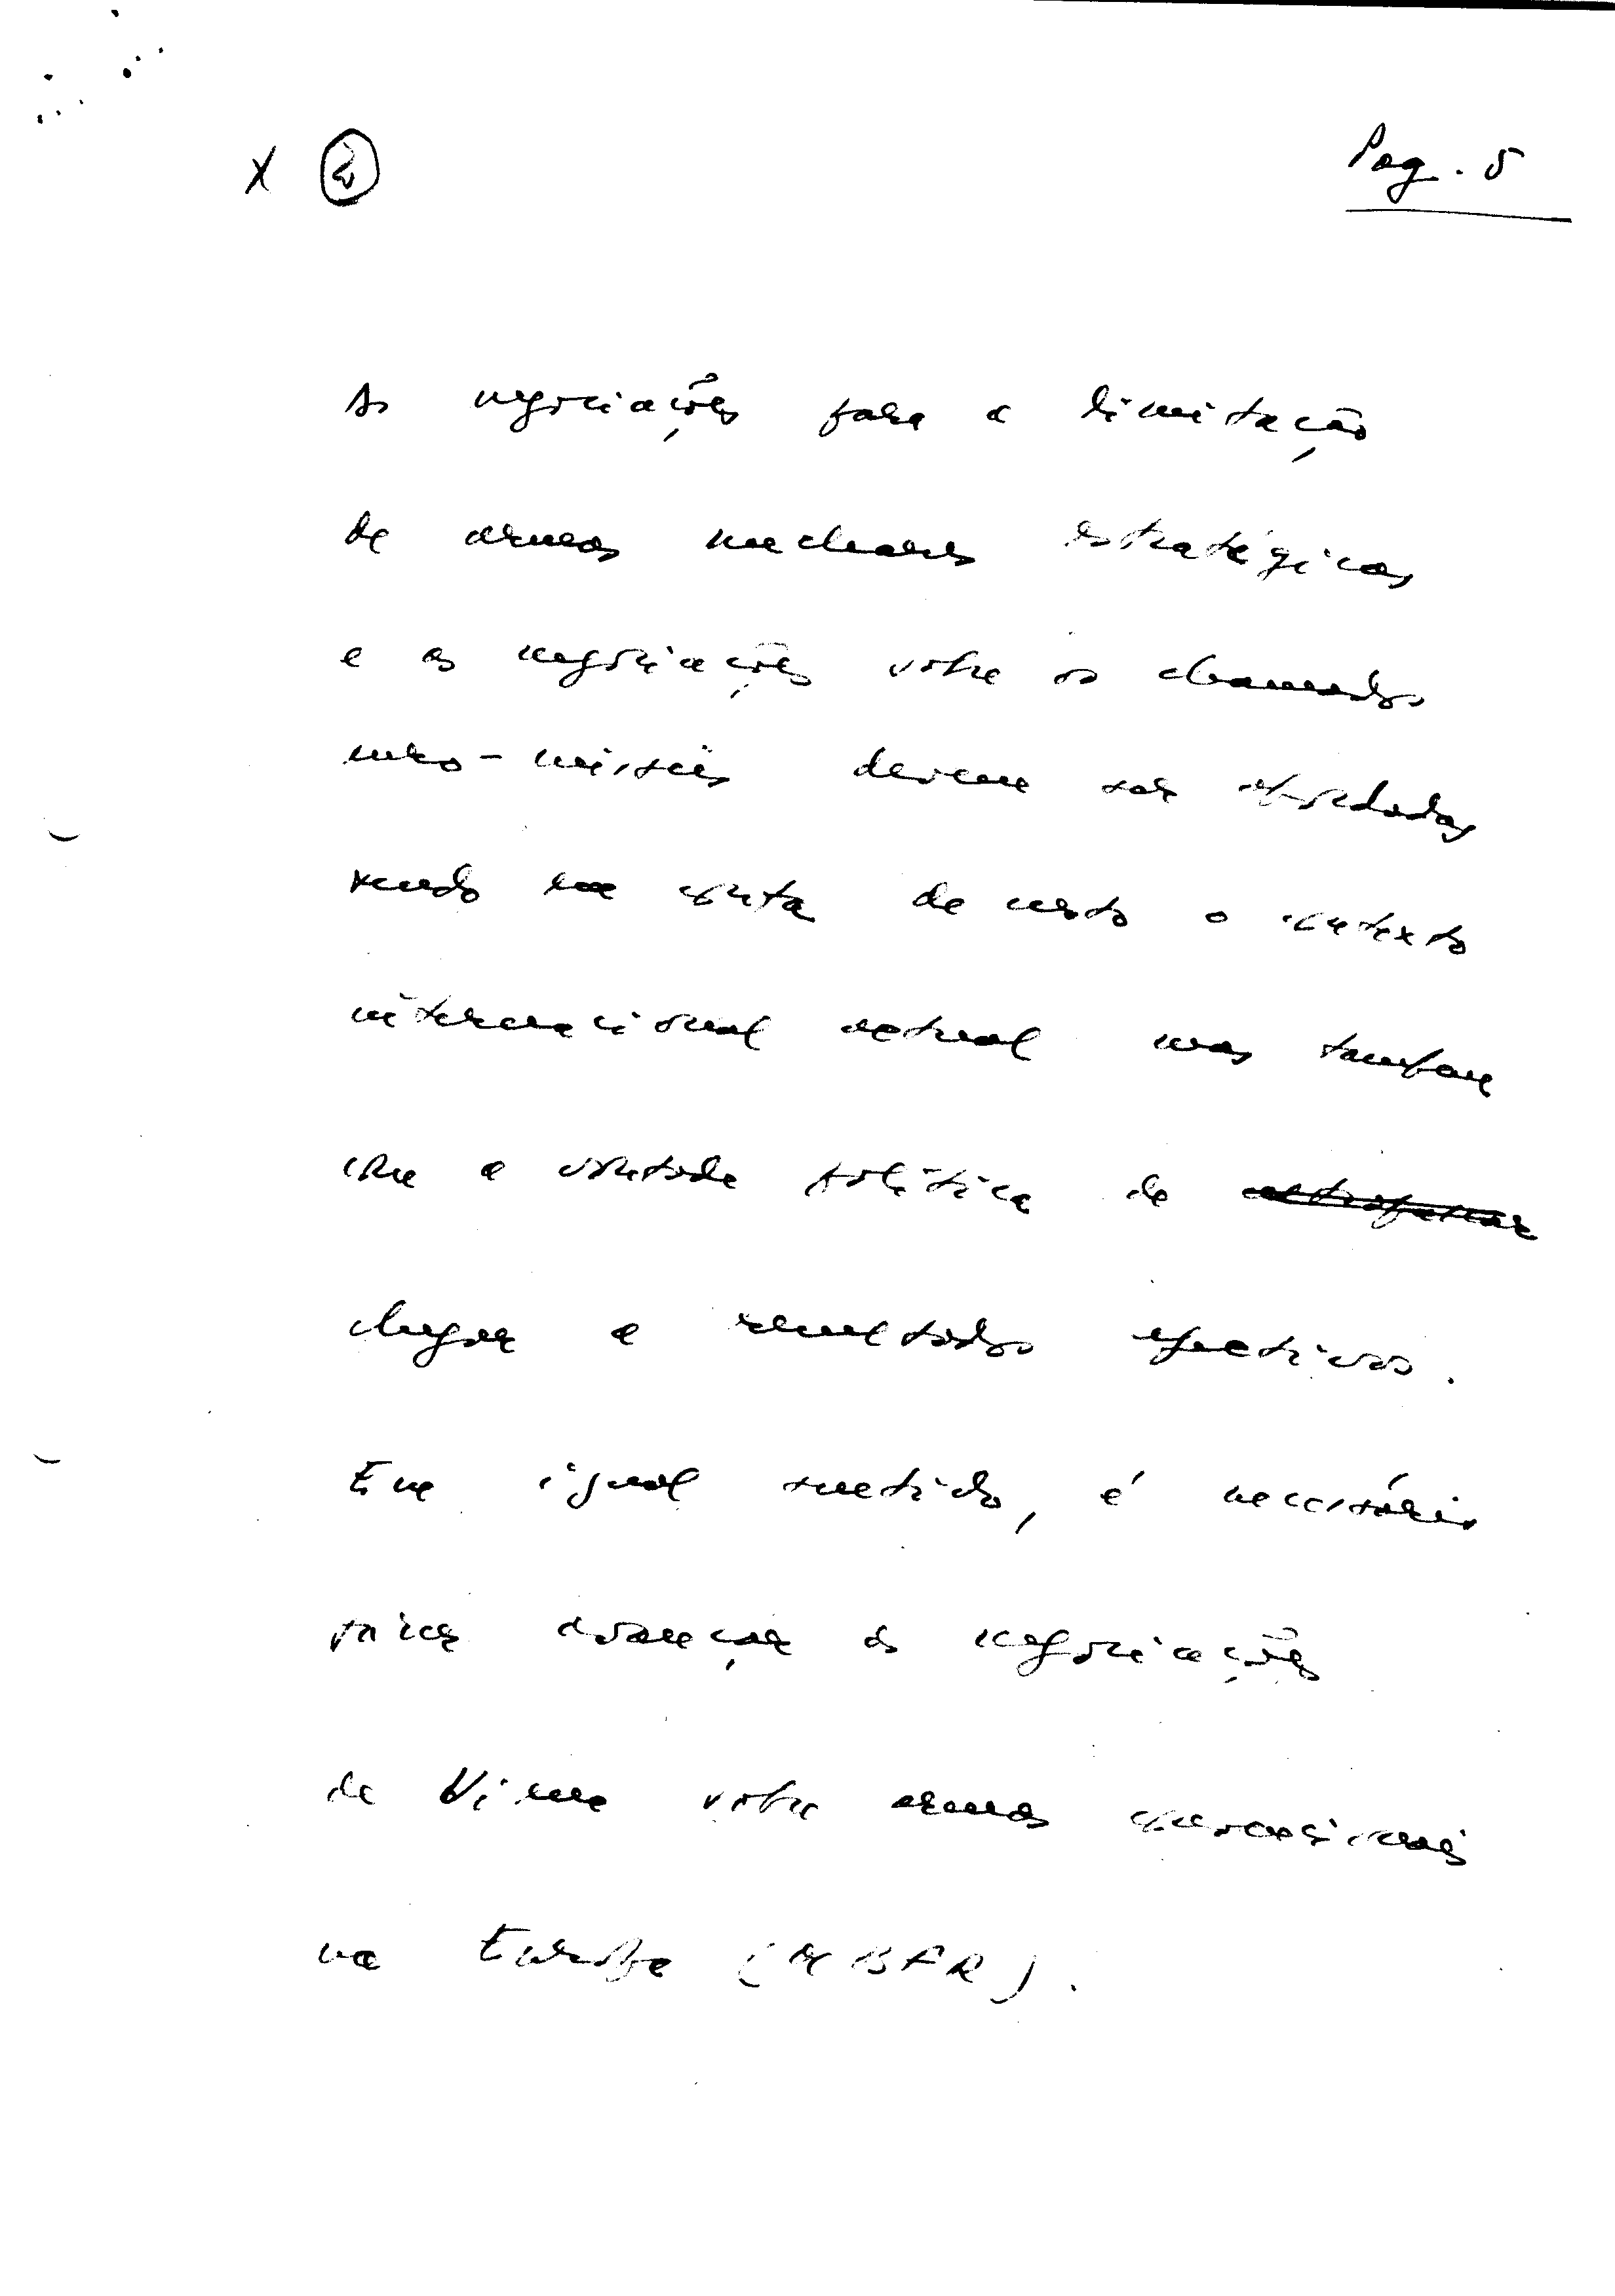 X 2
Pag. 5
As negociações para a limitação
de armas nucleares estratégicas
e as negociações sobre os chamados
euro-mísseis devem ser abordadas
tendo em conta de certo o contexto
internacional actual mas também
com a vontade política de
chegar a resultados efectivos.
Em igual sentido, é necessário
fazer avançar as negociações
de Viena sobre armas convencionais
na Europa (MBFR).